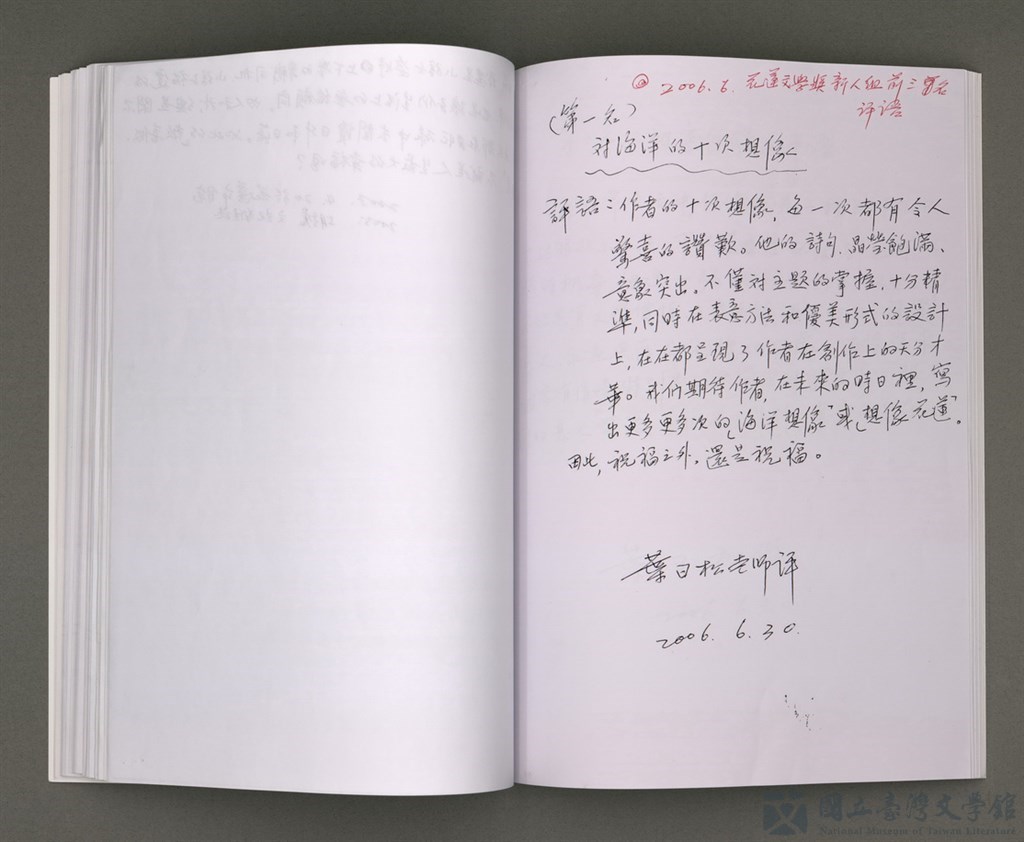 2006.6.花蓮文學獎新人組前三名
評語
(第一名)
对海洋的十次想像
評語：作者的十次想像，每一次都有令人
驚喜的讚歎。他的詩句，晶瑩飽滿、
意象突出。不僅对主題的掌握，十分精
準，同時在表意方法和優美形式的設計
上，在在都呈現了作者在創作上的天分才
華。我们期待作者，在未來的時日裡，寫
出更多更多次的「海洋想像」或「想像花蓮」。
因此，祝福之外，還是祝福。
葉日松老师评
2006.6.30.
國立臺灣文學館
National Museum of Taiwan Literature